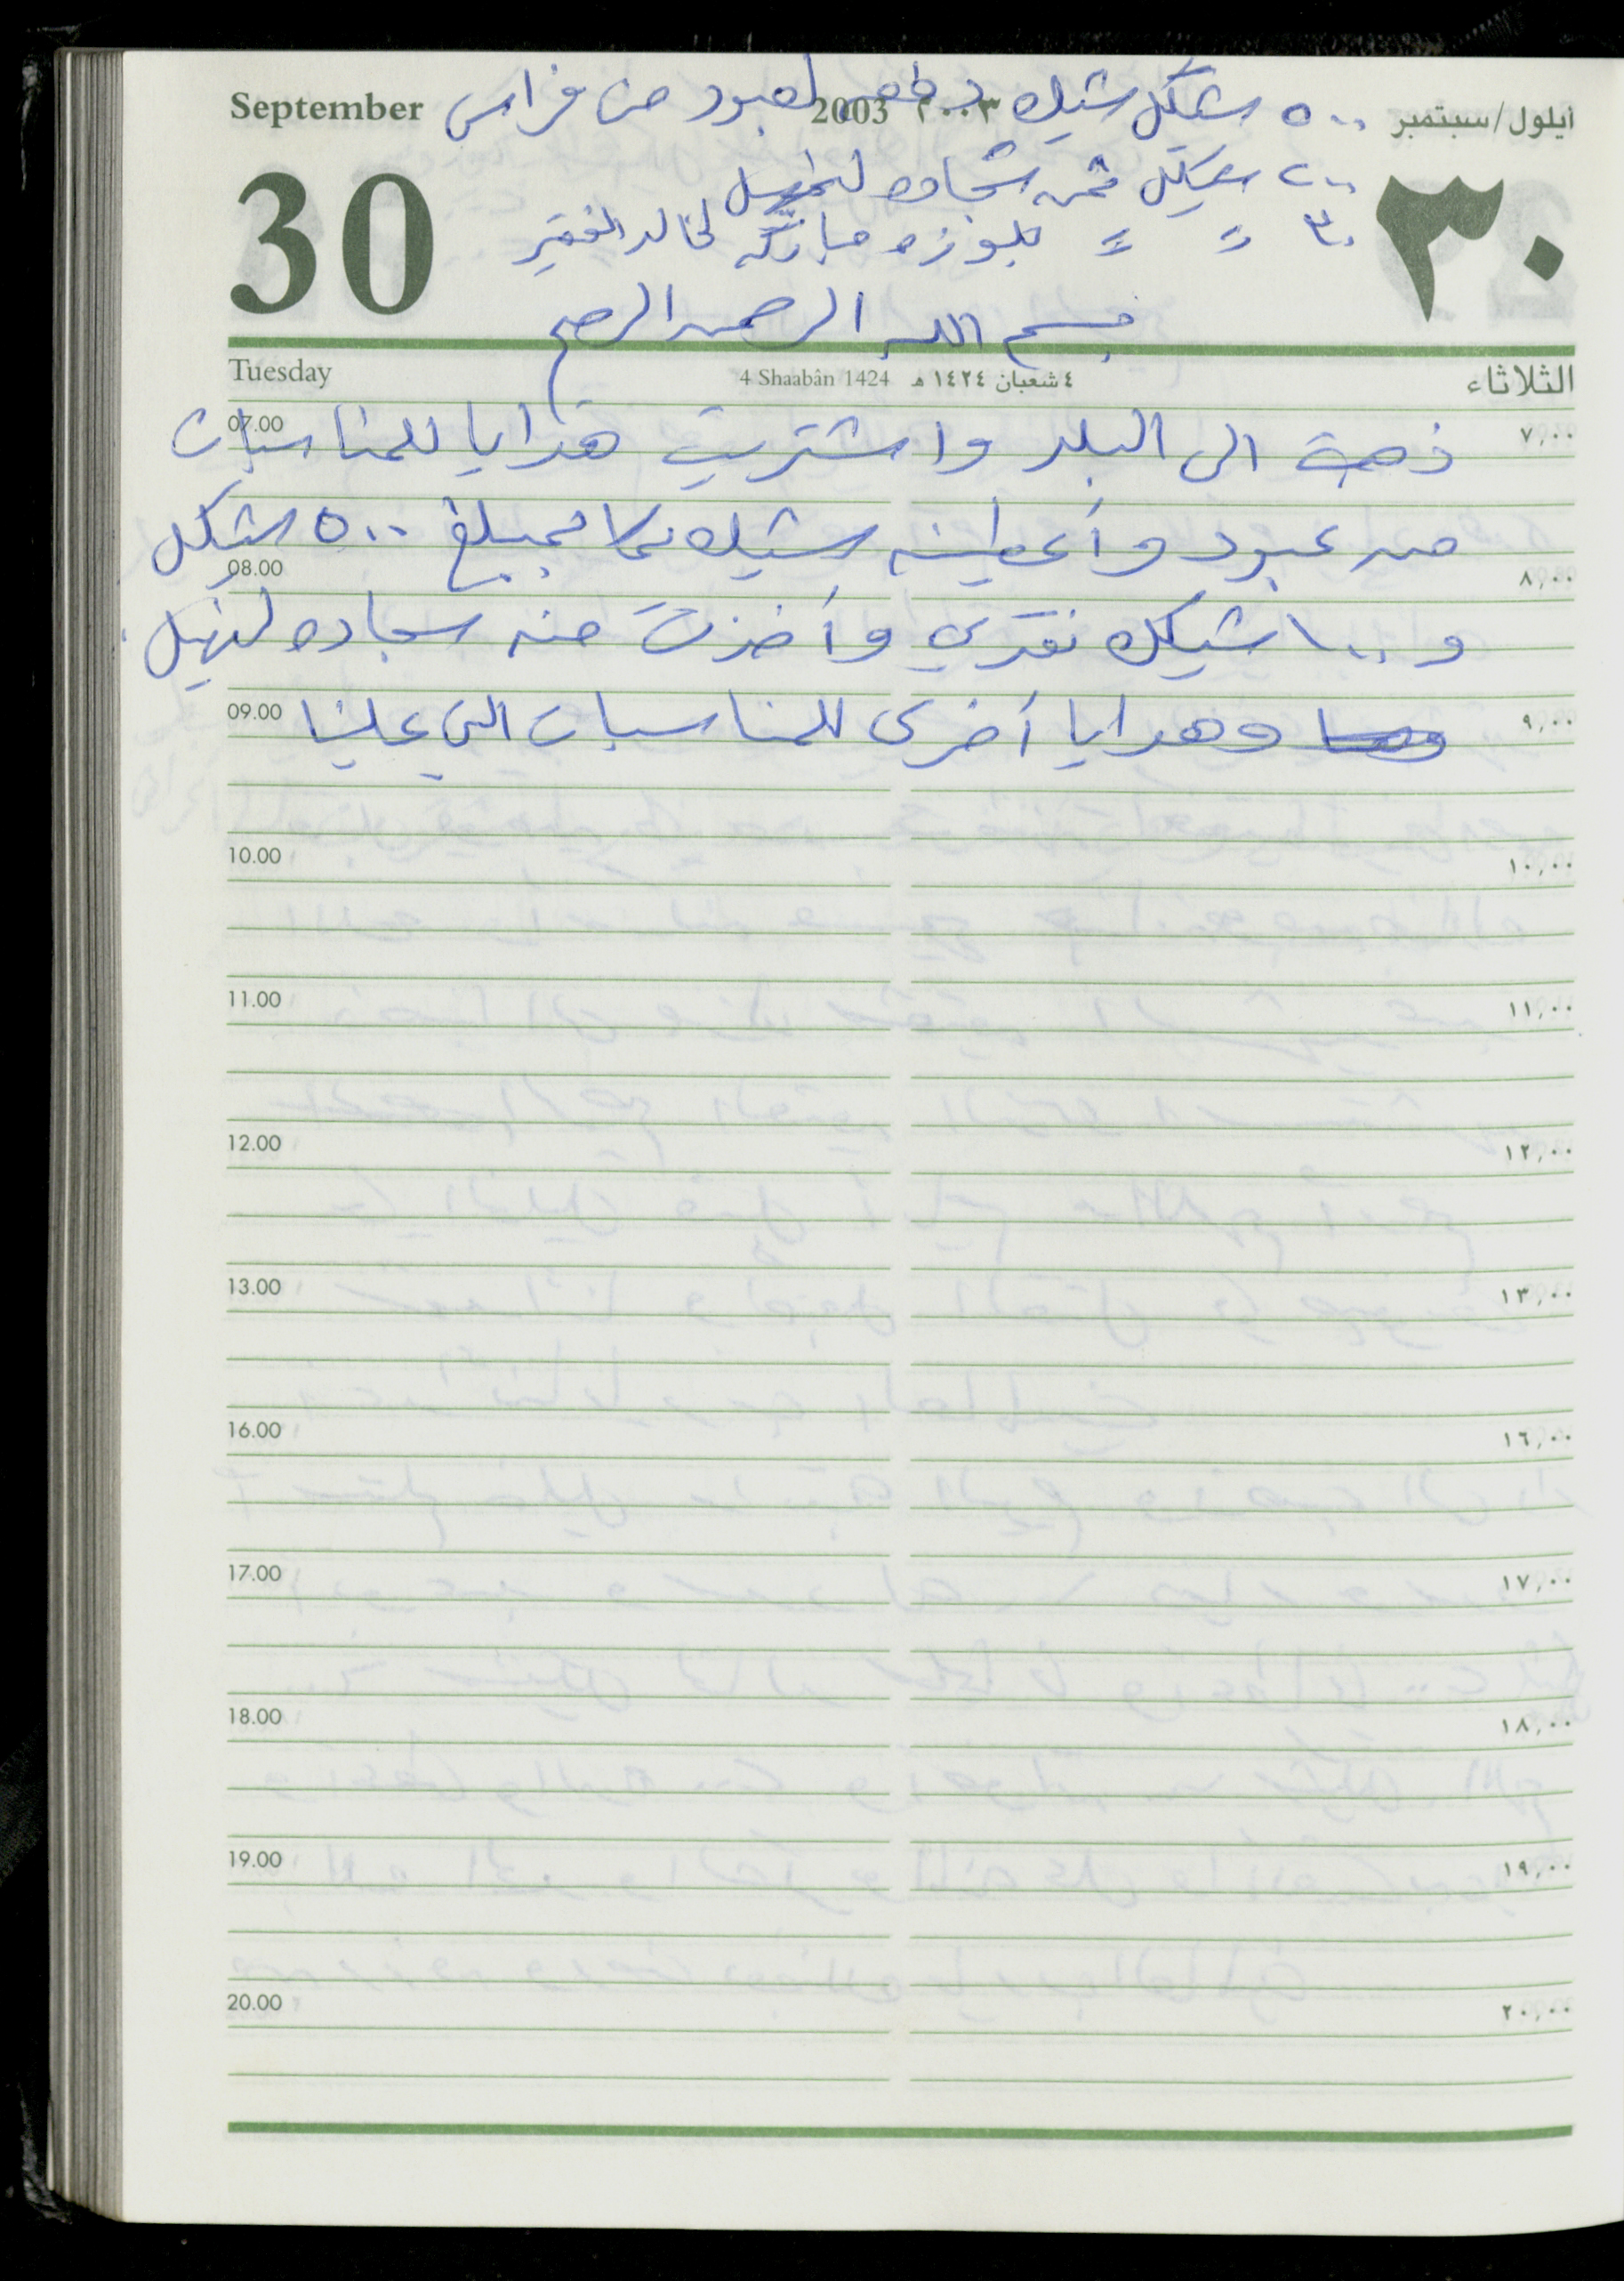 ٥٠٠ شيكل شيك دفعه لعبود من فراس
September 2003 ٢٠٠٣ أيلول/سبتمبر
٢٠٠ شيكل ثمن سجاده لنهيل
٣٠ = = بلوزه مباركه لخالد الفقير
30 ٣٠
بسم الله الرحمن الرحيم
Tuesday 4 Shaabân 1424 ٤ شعبان ١٤٢٤ هـ الثلاثاء
07.00 ٧,٠٠
ذهبت الى البلد واشتريت هدايا للمناسبات
من عبود وأعطيته شيك بمبلغ ٥٠٠ شيكل
08.00 ٨,٠٠
و ١٠٠ شيكل نقدي وأخذت منه سجاده لنهيل
09.00 ٩,٠٠
وهدايا أخرى للمناسبات التي علينا
10.00 ١٠,٠٠
11.00 ١١,٠٠
12.00 ١٢,٠٠
13.00 ١٣,٠٠
16.00 ١٦,٠٠
17.00 ١٧,٠٠
18.00 ١٨,٠٠
19.00 ١٩,٠٠
20.00 ٢٠,٠٠